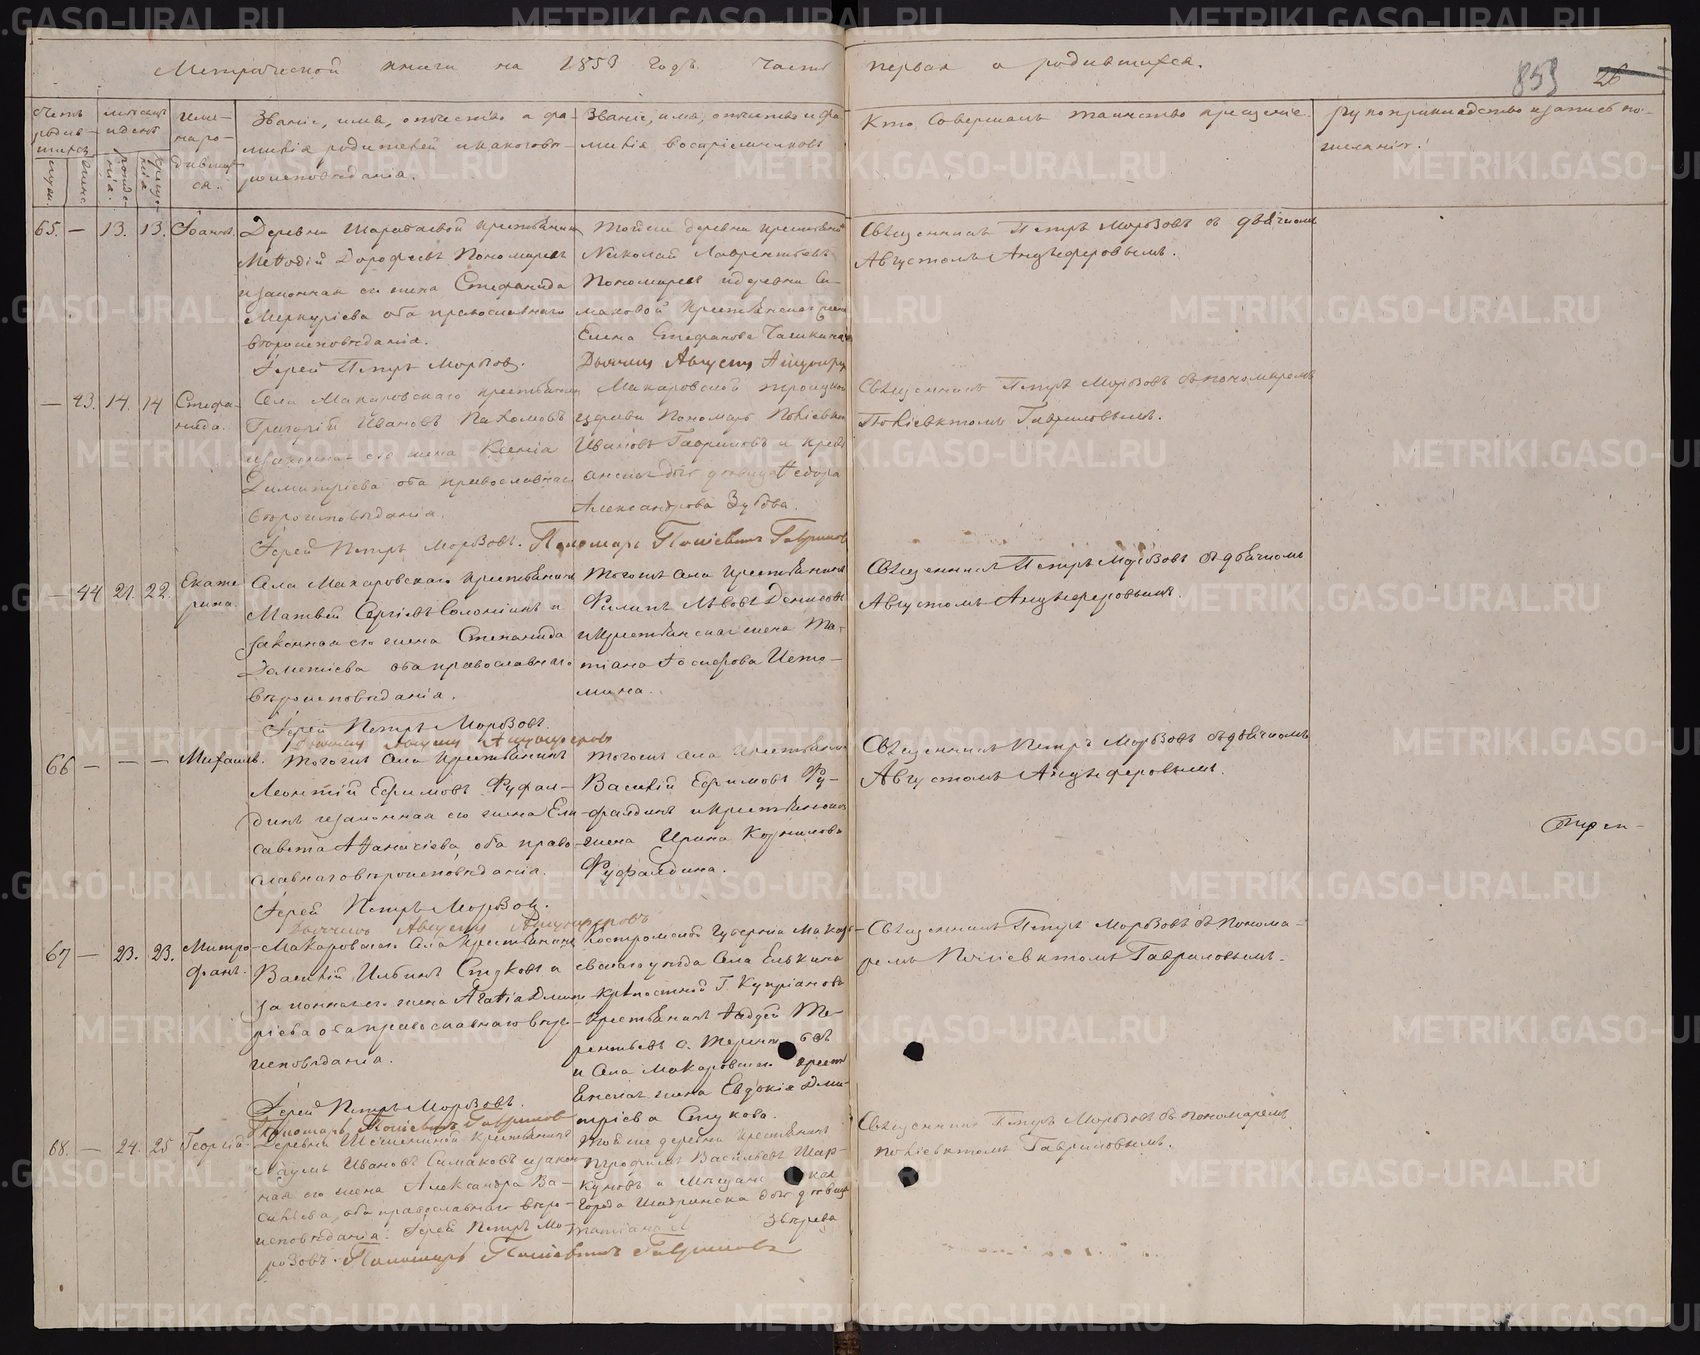 Метрической книги на 1853 годъ. Часть первая о родившихся.
853 26
Счетъ родив-шихся
муж. женс.
мѣсяцъ и день
рожде-нія. креще-нія.
Име-на ро-дивших-ся.
Званіе, имя, отчество и фа-
милія родителей и какого вѣ-
роисповѣданія.
Званіе, имя, отчество и фа-
милія воспріемниковъ
Кто совершалъ таинство крещенія.
Рукоприкладство записей по-
желанію.
65. — 13. 13. Іоаннъ.
Деревни крестьянинъ
Меѳодій Дорофеевъ Пономаревъ
и законная его жена Стефанида
Меркуріева оба православнаго
вѣроисповѣданія.
Іерей Петръ Морозовъ.
Тойже деревни крестьянинъ
Николай Лаврентьевъ
Пономаревъ и деревни Си-
маковой крестьянская жена
Елена Стефанова
Дьячекъ Августъ Анцыферовъ
Священникъ Петръ Морозовъ съ дьячкомъ
Августомъ Анцыферовымъ.
— 43. 14. 14 Стефа-
нида.
Села Макаровскаго крестьянинъ
Григорій Ивановъ Пахомовъ
и законная его жена Ксенія
Димитріева оба православнаго
вѣроисповѣданія.
Іерей Петръ Морозовъ. Пономарь Поліевктъ Гавриловъ
Макаровской Троицкой
церкви Пономарь Поліевктъ
Ивановъ Гавриловъ и крест-
янская дочь дѣвица Ѳедора
Александрова Зубова.
Священникъ Петръ Морозовъ съ пономаремъ
Поліевктомъ Гавриловымъ.
— 44 21. 22. Екате
рина.
Села Макаровскаго крестьянинъ
Матвей Сергіевъ Соломинъ и
законная его жена Степанида
оба православнаго
вѣроисповѣданія.
Іерей Петръ Морозовъ.
Дьячекъ Августъ Анцыферовъ
Тогоже села крестьянинъ
Филипъ Львовъ Денисовъ
и крестьянская жена Та-
тіана Исто-
мина.
Священникъ Петръ Морозовъ съ дьячкомъ
Августомъ Анцыферовымъ.
66 — — — Михаилъ.
Тогоже села крестьянинъ
Леонтій Ефимовъ Фуфал-
динъ и законная его жена Ели-
савета Аѳанасіева, оба право-
славнаго вѣроисповѣданія.
Іерей Петръ Морозовъ.
Дьячекъ Августъ Анцыферовъ
Тогоже села крестьянинъ
Василій Ефимовъ Фу-
фалдинъ и крестьянская
жена Ирина Корнилова
Фуфалдина.
Священникъ Петръ Морозовъ съ дьячкомъ
Августомъ Анцыферовымъ.
67 — 23. 23. Митро-
фанъ.
Макаровскаго села крестьянинъ
Василій Ильинъ Стуковъ и
законная его жена Агаѳія Дмит-
ріева оба православнаго вѣро-
исповѣданія.
Іерей Петръ Морозовъ.
Пономарь Поліевктъ Гавриловъ
Костромской губерніи Макарь-
евскаго уѣзда села Елькина
крѣпостной Г. Купріанова
крестьянинъ Ѳадей Те-
рентьевъ
и села Макаровскаго крест
янская жена Евдокія Дми-
тріева Стукова.
Священникъ Петръ Морозовъ съ понома-
ремъ Поліевктомъ Гавриловымъ.
68. — 24. 25 Георгій.
Деревни крестьянинъ
Наумъ Ивановъ Симаковъ и закон-
ная его жена Александра Ва-
сильева, оба православнаго вѣро-
исповѣданія. Іерей Петръ Мо-
розовъ. Пономарь Поліевктъ Гавриловъ
Тойже деревни крестьянинъ
Профилъ Васильевъ Шар-
куновъ и Мещан ская
города Шадринска дочь дѣвица
Татіана Звѣрева
Священникъ Петръ Морозовъ съ пономаремъ
Поліевктомъ Гавриловымъ.
METRIKI.GASO-URAL.RU